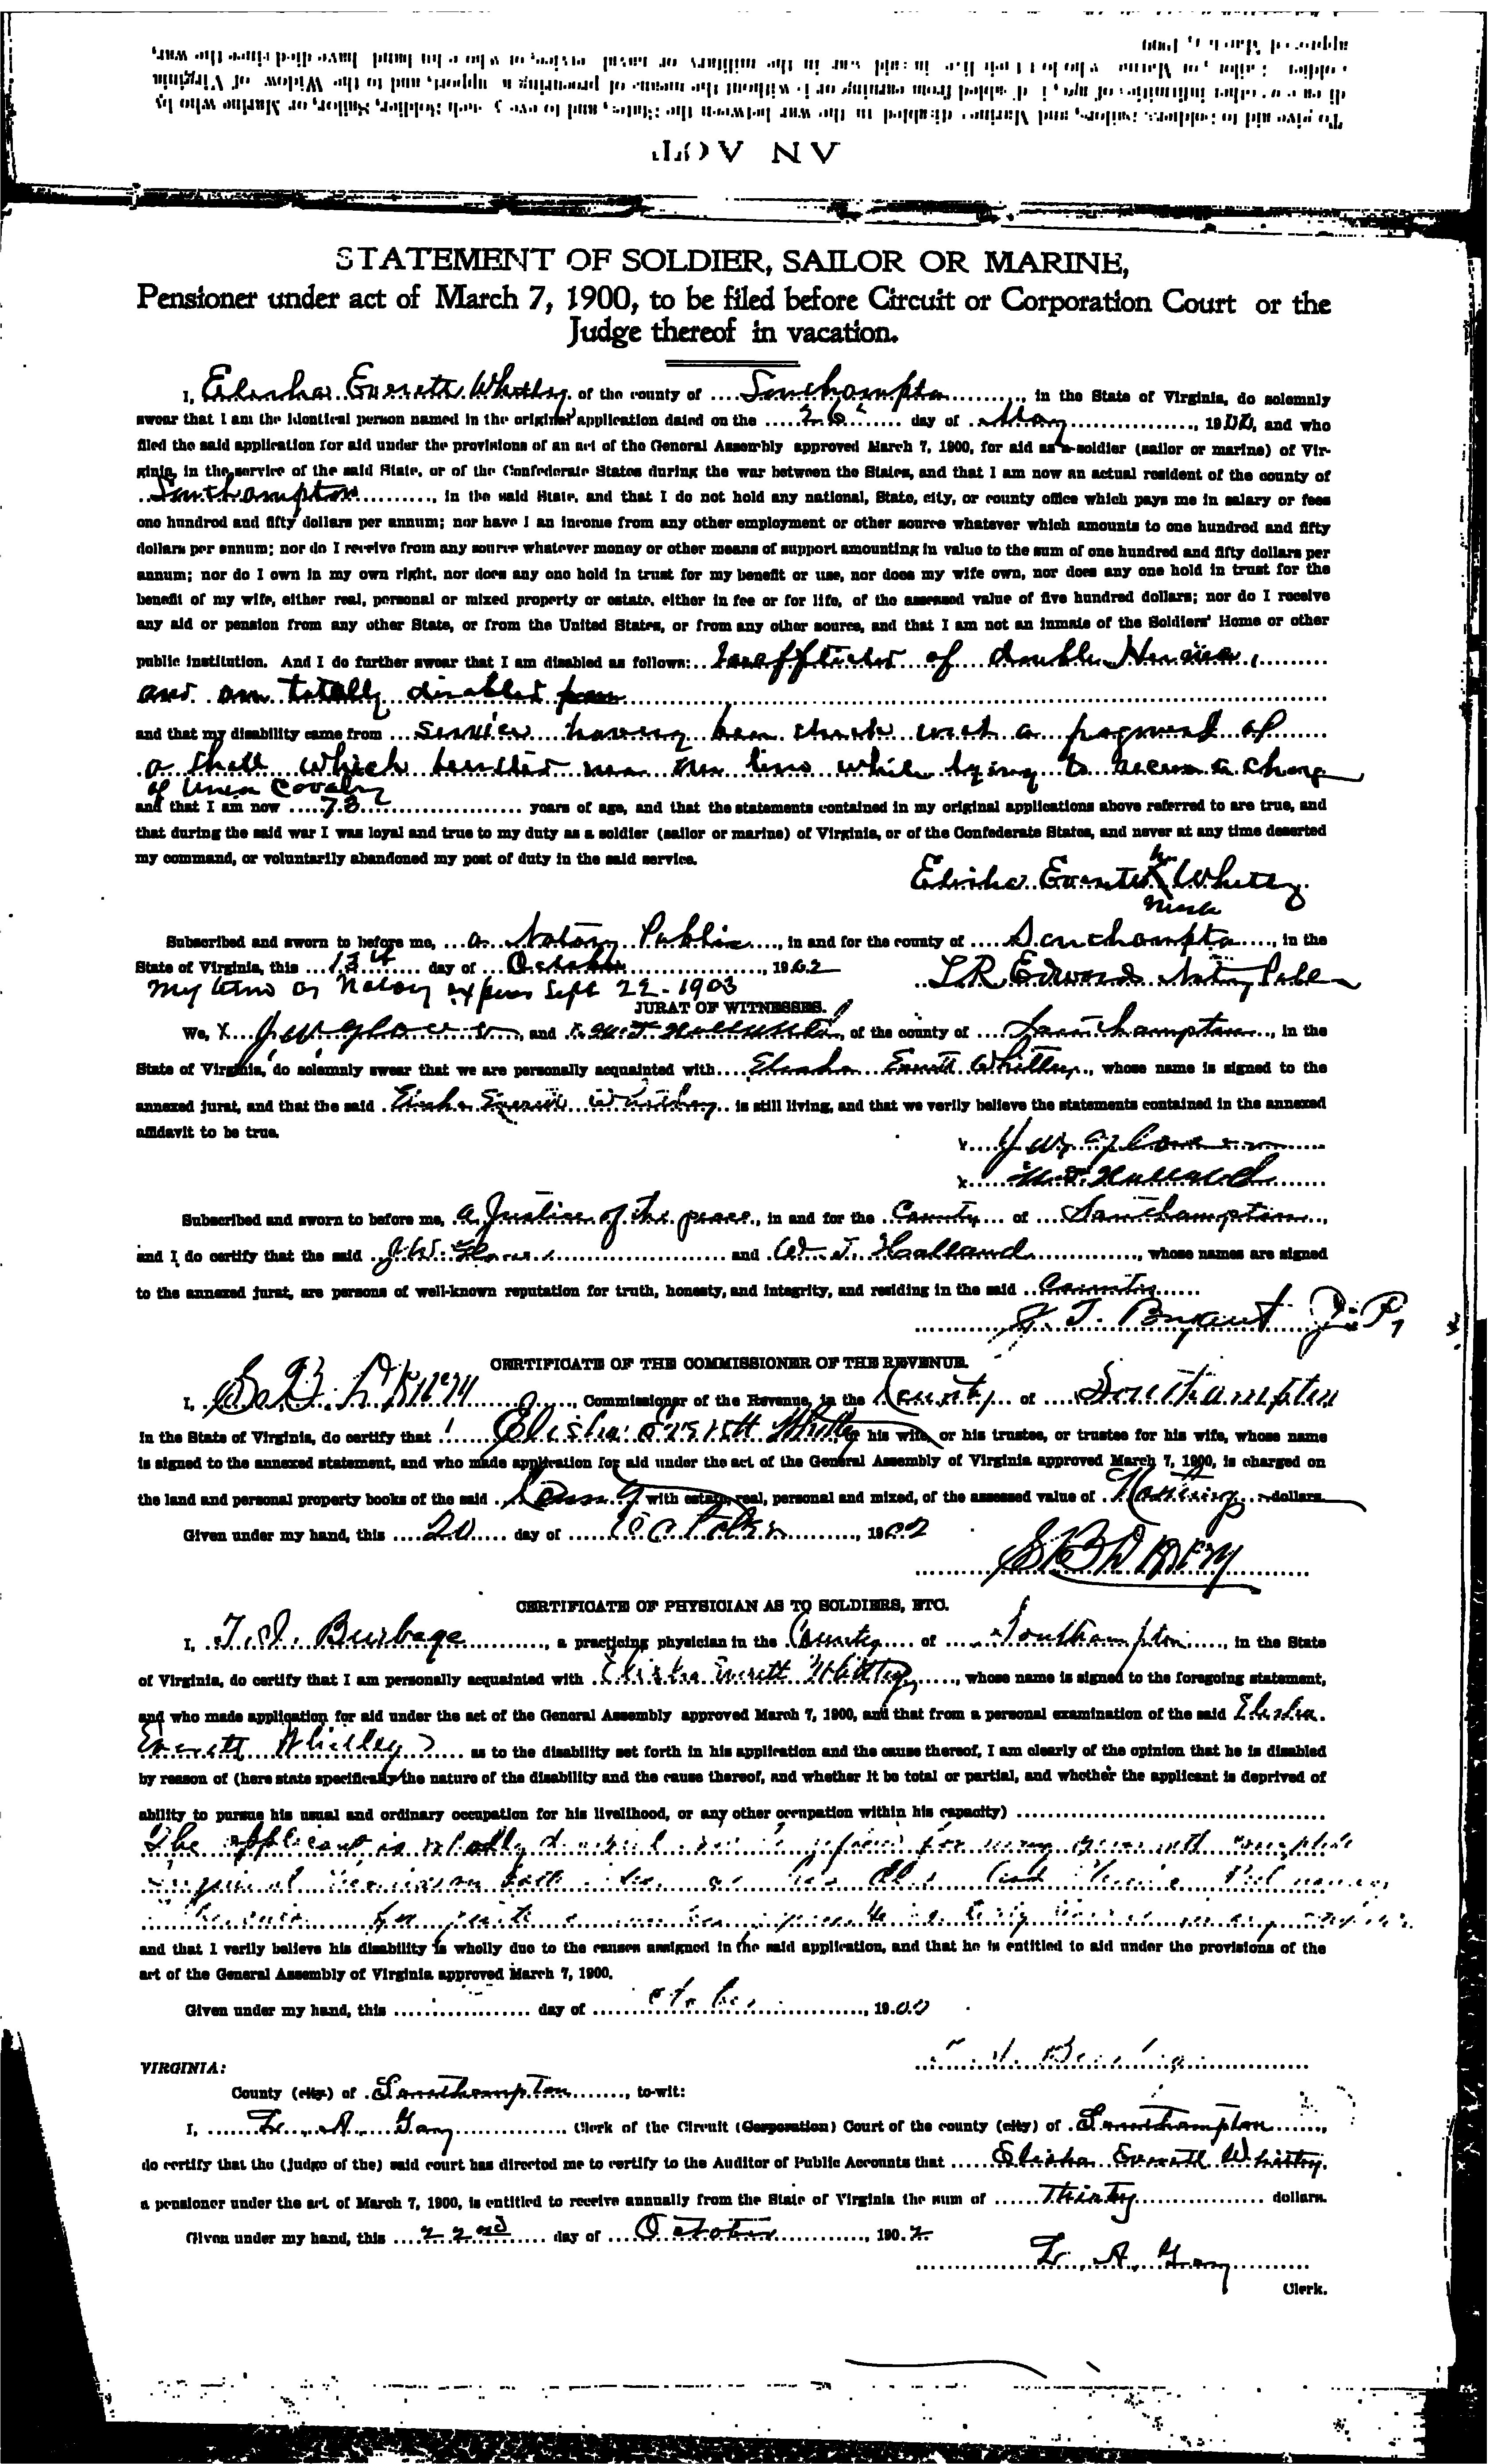 AN ACT
To give aid to soldiers, sailors, and Marines disabled in the war between the States, and to
approved March 7, 1900
STATEMENT OF SOLDIER, SAILOR OR MARINE,
Pensioner under act of March 7, 1900, to be filed before Circuit or Corporation Court or the
Judge thereof in vacation.
I, Elisha Everett Whitley of the county of Southampton, in the State of Virginia, do solemnly
swear that I am the identical person named in the original application dated on the 26 day of May, 1900, and who
filed the said application for aid under the provisions of an act of the General Assembly approved March 7, 1900, for aid as a soldier (sailor or marine) of Vir-
ginia, in the service of the said State, or of the Confederate States during the war between the States, and that I am now an actual resident of the county of
Southampton, in the said State, and that I do not hold any national, State, city, or county office which pays me in salary or fees
one hundred and fifty dollars per annum; nor have I an income from any other employment or other source whatever which amounts to one hundred and fifty
dollars per annum; nor do I receive from any source whatever money or other means of support amounting in value to the sum of one hundred and fifty dollars per
annum; nor do I own in my own right, nor does any one hold in trust for my benefit or use, nor does my wife own, nor does any one hold in trust for the
benefit of my wife, either real, personal or mixed property or estate, either in fee or for life, of the assessed value of five hundred dollars; nor do I receive
any aid or pension from any other State, or from the United States, or from any other source, and that I am not an inmate of the Soldiers' Home or other
public institution. And I do further swear that I am disabled as follows: of double Hernia,
and am totally disabled from
and that my disability came from service having been struck with a fragment of
a shell which while lying to a charge
of Union Cavalry
and that I am now 73 years of age, and that the statements contained in my original applications above referred to are true, and
that during the said war I was loyal and true to my duty as a soldier (sailor or marine) of Virginia, or of the Confederate States, and never at any time deserted
my command, or voluntarily abandoned my post of duty in the said service.
Elisha Everett his X Whitley
mark
Subscribed and sworn to before me, a Notary Public, in and for the county of Southampton, in the
State of Virginia, this 13th day of October, 1902
L R Edwards Notary Public
my term as Notary expires Sept 22-1903
JURAT OF WITNESSES.
We, X J. W. Glover, and W. T. Holland, of the county of Southampton, in the
State of Virginia, do solemnly swear that we are personally acquainted with Elisha Everett Whitley, whose name is signed to the
annexed jurat, and that the said Elisha Everett Whitley is still living, and that we verily believe the statements contained in the annexed
affidavit to be true.
x J W Glover
x W. T. Holland
Subscribed and sworn to before me, a Justice of the peace, in and for the County of Southampton,
and I do certify that the said J. W. Glover and W. T. Holland, whose names are signed
to the annexed jurat, are persons of well-known reputation for truth, honesty, and integrity, and residing in the said County
T. Bryant J. P,
CERTIFICATE OF THE COMMISSIONER OF THE REVENUE.
I, S. B. Drkery, Commissioner of the Revenue, in the County of Southampton
in the State of Virginia, do certify that Elisha Everett Whitley or his wife, or his trustee, or trustee for his wife, whose name
is signed to the annexed statement, and who made application for aid under the act of the General Assembly of Virginia approved March 7, 1900, is charged on
the land and personal property books of the said County with estate, real, personal and mixed, of the assessed value of Nothing dollars.
Given under my hand, this 20 day of October, 1902
CERTIFICATE OF PHYSICIAN AS TO SOLDIERS, ETC.
I, T. J. Burbage, a practicing physician in the County of Southampton, in the State
of Virginia, do certify that I am personally acquainted with Elisha Everett Whitley, whose name is signed to the foregoing statement,
and who made application for aid under the act of the General Assembly approved March 7, 1900, and that from a personal examination of the said Elisha
Everett Whitley as to the disability set forth in his application and the cause thereof, I am clearly of the opinion that he is disabled
by reason of (here state specifically the nature of the disability and the cause thereof, and whether it be total or partial, and whether the applicant is deprived of
ability to pursue his usual and ordinary occupation for his livelihood, or any other occupation within his capacity)
The applicant is wholly for many years with complete
and that I verily believe his disability is wholly due to the causes assigned in the said application, and that he is entitled to aid under the provisions of the
act of the General Assembly of Virginia approved March 7, 1900.
Given under my hand, this day of October, 1900
T. J. Burbage
VIRGINIA:
County (city) of Southampton, to-wit:
I, L. A. Gay, Clerk of the Circuit (Corporation) Court of the county (city) of Southampton,
do certify that the (judge of the) said court has directed me to certify to the Auditor of Public Accounts that Elisha Everett Whitley,
a pensioner under the act of March 7, 1900, is entitled to receive annually from the State of Virginia the sum of Thirty dollars.
Given under my hand, this 22nd day of October, 1902
L. A. Gay
Clerk.